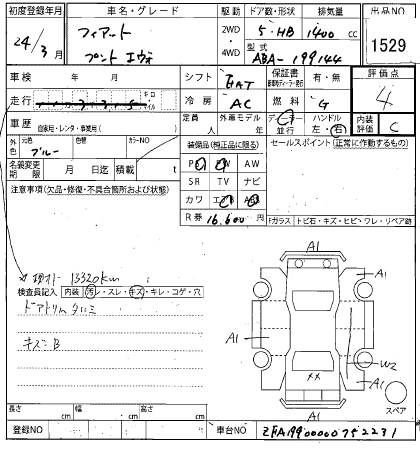 初度登録年月 車名・グレード 駆動 ドア数・形状 排気量 出品NO
24/3月 フィアート 2WD 5・HB 1400 cc 1529
プント エヴォ 4WD 型式 ABA-199144
車検 年 月 シフト 6AT 保証書 有・無 評価点
走行 キロ マイル 冷房 AC 燃料 G 4
車歴 自家用・レンタ・事業用( ) 定員 人 外車モデル 年 ディーラー 並行 ハンドル 左・右 内装評価 C
外色 元色 ブルー 色替 カラーNO 装備品(純正品に限る) セールスポイント(正常に作動するもの)
名義変更期限 月 日迄 積載 t PS PW AW
注意事項(欠品・修復・不具合箇所および状態) SR TV ナビ
カワ エアB ABS
R券 16,600 円 Fガラス トビ石・キズ・ヒビ・ワレ・リペア跡
現メーター 13320km
検査員記入 内装 汚レ・スレ・キズ・キレ・コゲ・穴
ドアトリム タルミ
キズ=B
A1
A1
A1
A1
W2
××
A1
A1
スペア
長さ cm 幅 cm 高さ cm
登録NO 車台NO ZFA19900000752231